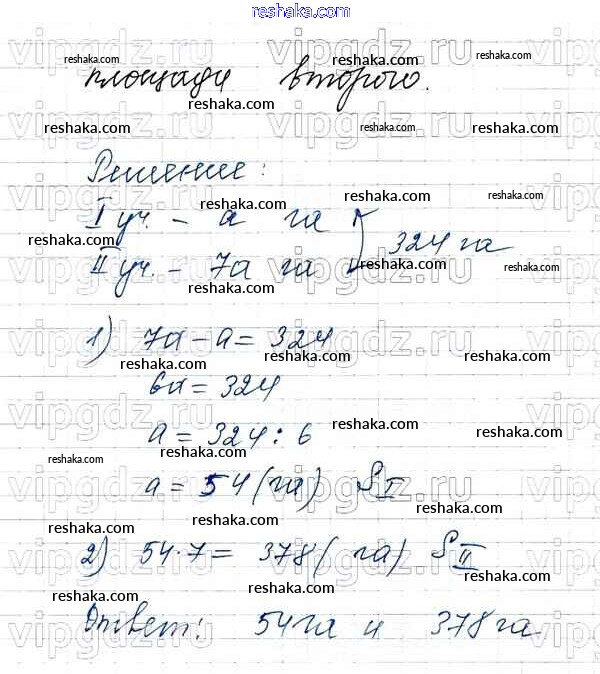 reshaka.com
площади второго.
Решение:
I уч. - а га
324 га
II уч. - 7а га
1) 7а - а = 324
6а = 324
а = 324 : 6
а = 54 (га) S I
2) 54 · 7 = 378 (га) S II
Ответ: 54 га и 378 га
vipgdz.ru
reshaka.com